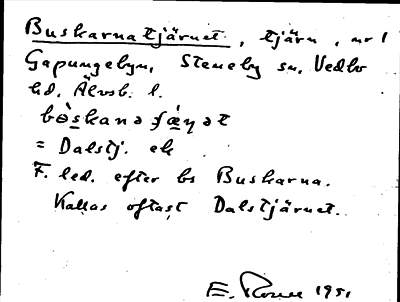 Buskarnatjärnet, tjärn, nr 1
Gapungebyn, Steneby sn, Vedbo
hd, Älvsb. l.
bȯ̱skanə ʄä́ṉət
= Dalstj. ek
F. led. efter bs Buskarna.
Kallas oftast Dalstjärnet.
E. 1951